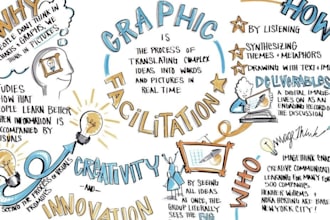 WHY
PEOPLE DON'T THINK IN
THINK IN PICTURES
STUDIES
SHOW THAT
PEOPLE LEARN BETTER
WHEN INFORMATION IS
ACCOMPANIED BY
VISUALS
GRAPHIC
IS
THE PROCESS OF
TRANSLATING COMPLEX
IDEAS INTO WORDS
AND PICTURES IN
REAL TIME
FACILITATION
CREATIVITY
AND
INNOVATION
BY SEEING
ALL IDEAS
AT ONCE, THE
GROUP LITERALLY
SEES THE
HOW
BY LISTENING
SYNTHESIZING
THEMES + METAPHORS
DRAWING WITH TEXT +
DELIVERABLES
A DIGITAL IMAGE
LIVES ON AS AN
RECORD OF
THE DISCUSSION
WHO
IMAGE THINK
CREATIVE
LEARNING FOR MANY
500 COMPANIES.
NEW YORK CITY